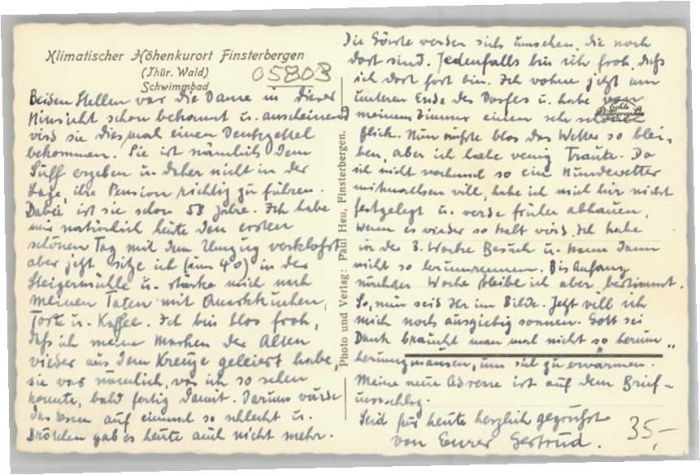 Klimatischer Höhenkurort Finsterbergen
(Thür. Wald)
Schwimmbad
05803
Beiden Stellen war die Dame in dieser
Hinsicht schon bekannt u. anscheinend
wird sie diesmal einen Denkzettel
bekommen. Sie ist nämlich dem
Suff ergeben u. daher nicht in der
Lage, ihre Pension richtig zu führen.
Dabei ist sie schon 58 Jahre. Ich habe
mir natürlich heute den ersten
schönen Tag mit dem Umzug verkloppt
aber jetzt sitze ich (um 40) in der
Steigermühle u. stärke mich nach
meinen Taten mit Quarkkuchen,
Torte u. Kaffee. Ich bin blos froh,
daß ich meine Marken der Alten
wieder aus dem Kreuze geleiert habe,
sie war nämlich, wo ich so sehen
konnte, bald fertig damit. Darum würde
das Essen auf einmal so schlecht u.
Brötchen gab es heute auch nicht mehr.
Photo und Verlag: Phil Heu, Finsterbergen.
Die Gäste werden sich umsehen, die noch
dort sind. Jedenfalls bin ich froh, daß
ich dort fort bin. Ich wohne jetzt am
unteren Ende des Dorfes u. habe von
meinem Zimmer einen sehr
flick. Nun müßte blos das Wetter so blei-
ben, aber ich habe wenig Traute. Da
ich nicht nochmal so ein Hundewetter
mitmachen will, habe ich mich hier nicht
festgelegt u. werde früher abhauen,
wenn es wieder so kalt wird. Ich habe
in der 3. Woche Besuch u. kann dann
nicht so herumrennen. Bis Anfang
nächster Woche bleibe ich aber bestimmt.
So, nun seid Ihr im Bilde. Jetzt will ich
mich noch ausgiebig sonnen. Gott sei
Dank braucht man mal nicht so herum
herumzumausen, um sich zu erwärmen.
Meine neue Adresse ist auf dem Brief-
umschlag.
Seid für heute herzlich gegrüßt
von Eurer Gertrud.
35,-